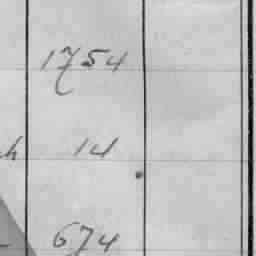 1754
h 14
674